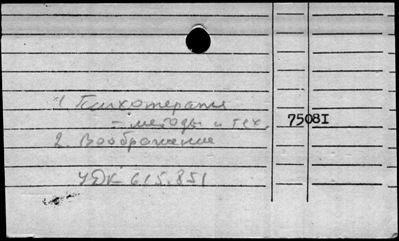 1 Психотерапия
- методы и тех. 75081
2. Воображение
УДК 615.851